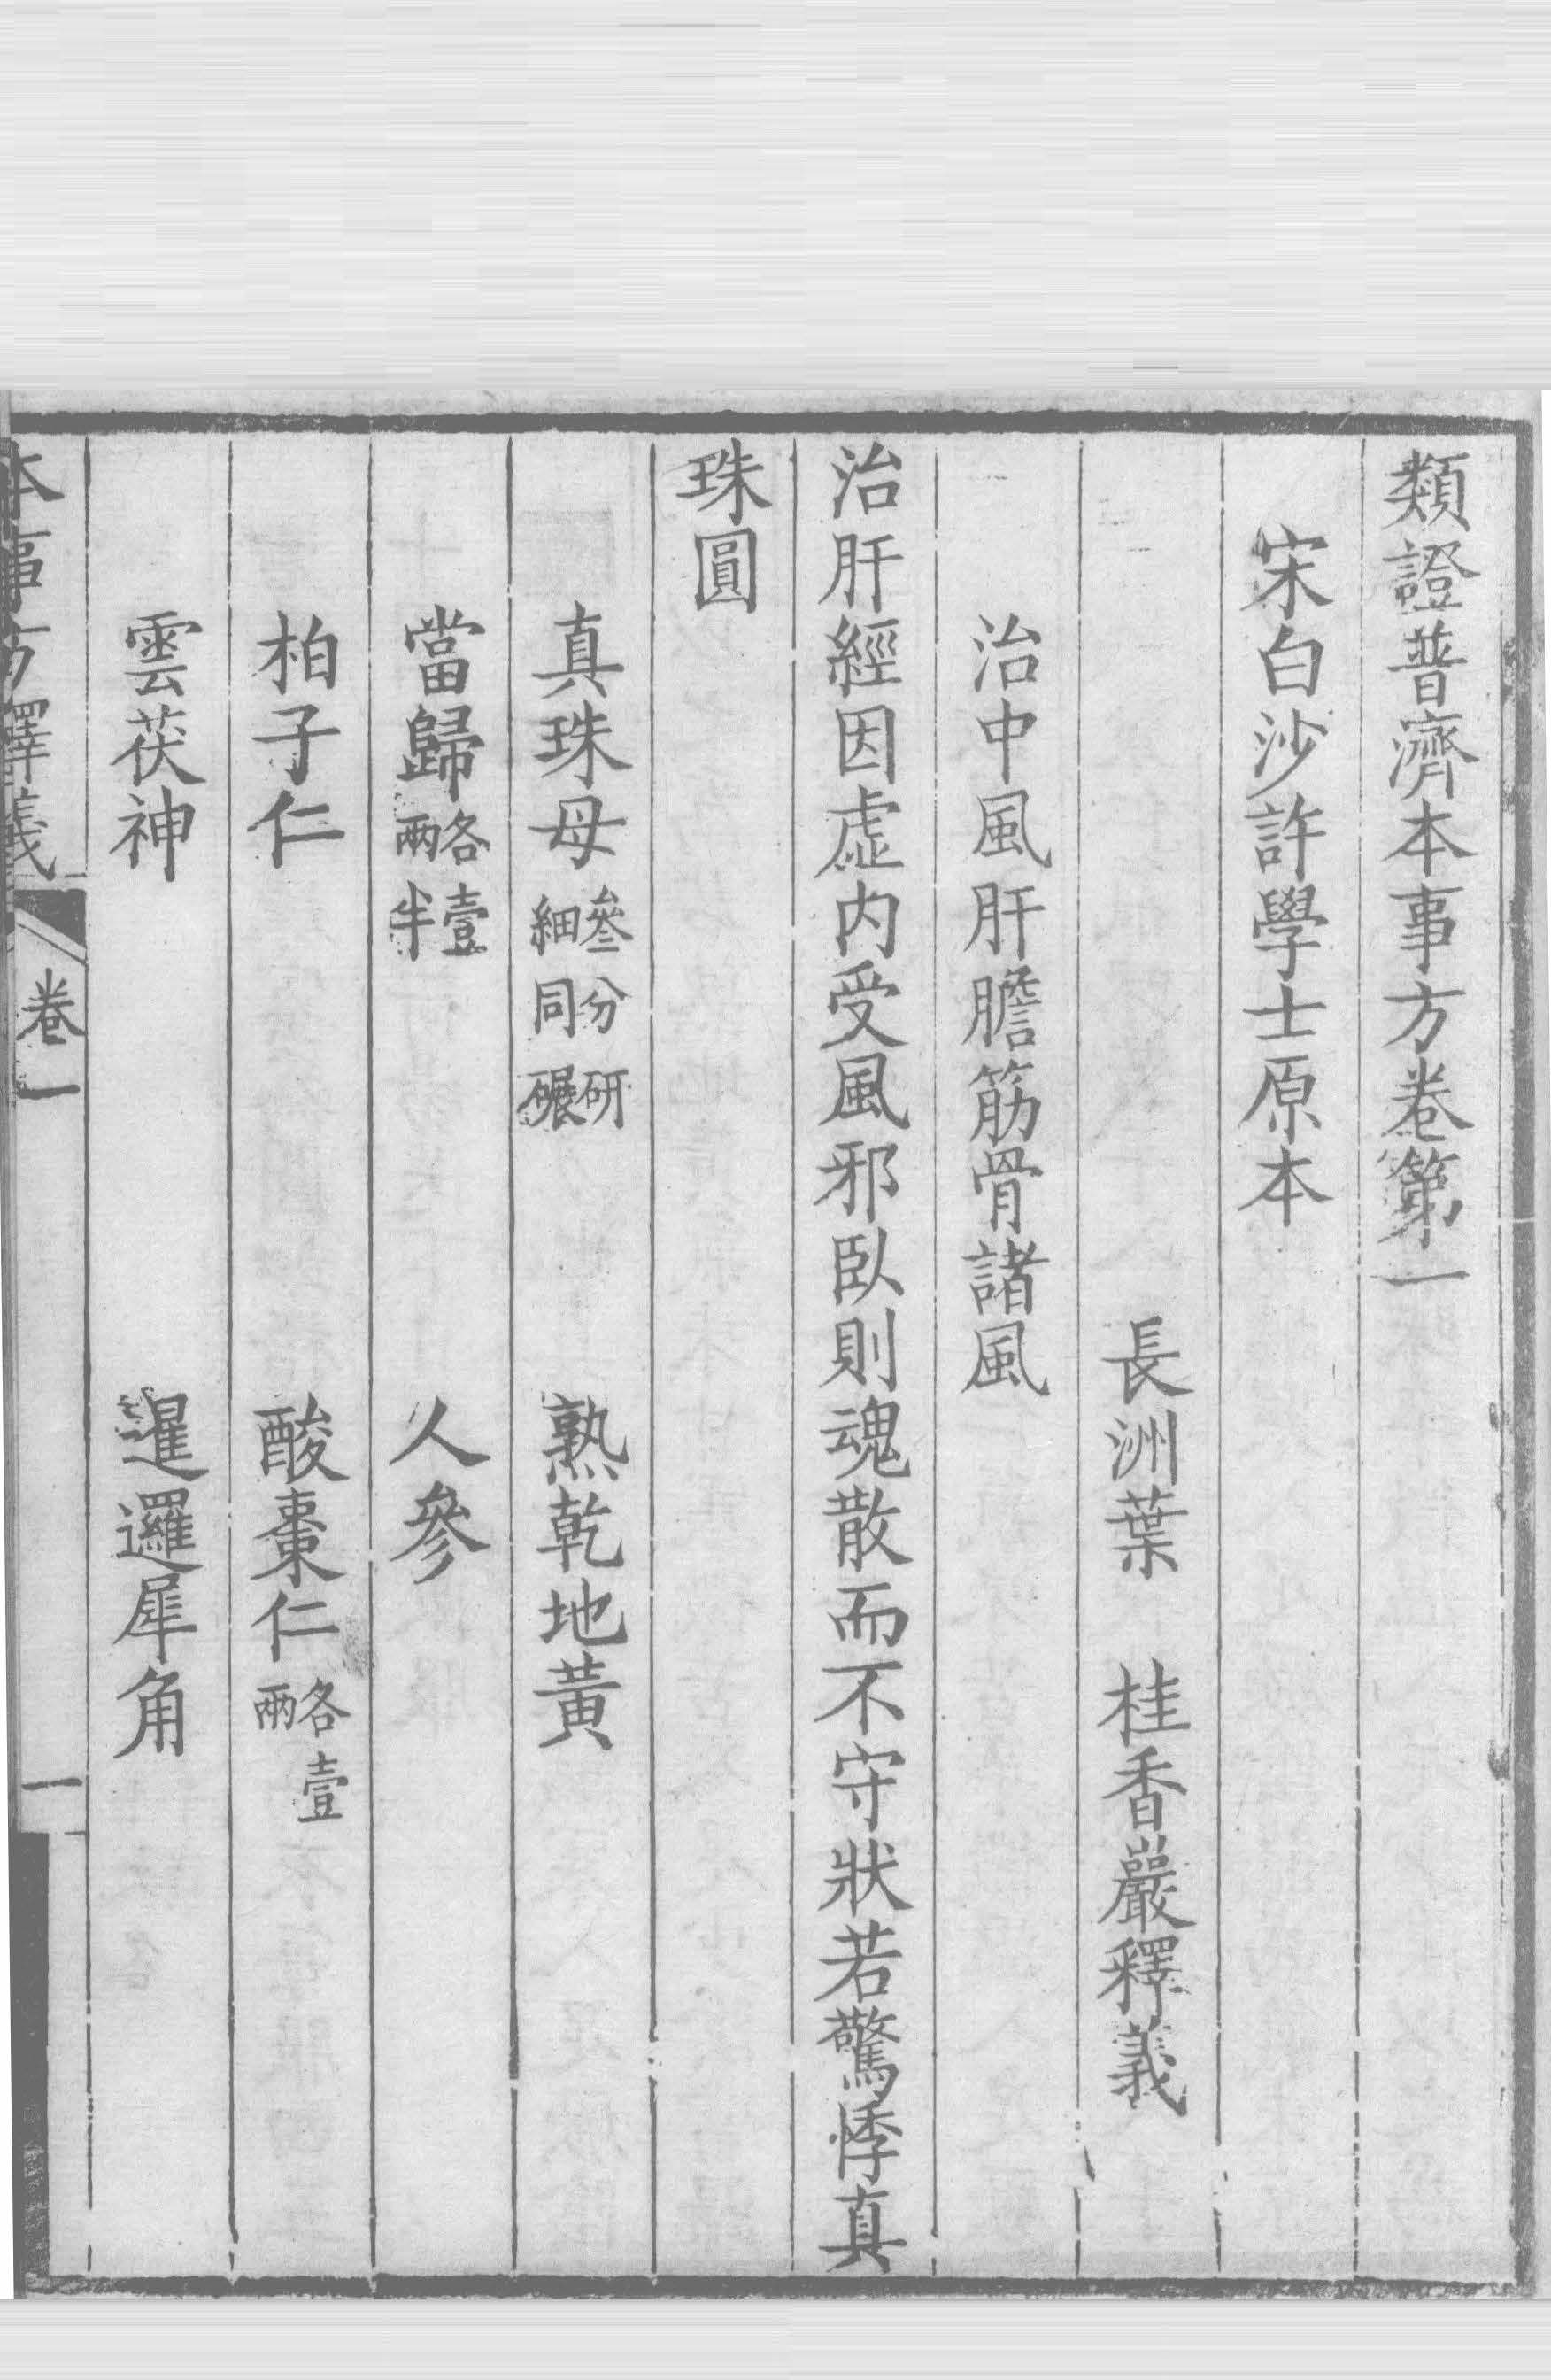 類證普濟本事方卷第一
宋白沙許學士原本
長洲葉　桂香巖釋義
治中風肝膽筋骨諸風
治肝經因虛內受風邪臥則魂散而不守狀若驚悸真
珠圓
真珠母參分研細同碾　熟乾地黃
當歸各壹兩半　人參
柏子仁　酸棗仁各壹兩
雲茯神　暹邏犀角
本事方釋義　卷一　一